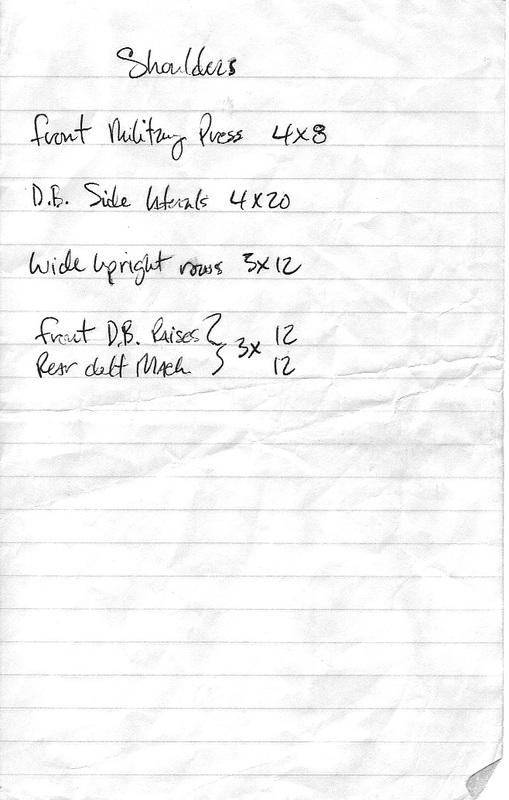 Shoulders
front Military Press 4x8
D.B. Side laterals 4x20
Wide upright rows 3x12
front D.B. Raises } 3x 12
Rear delt Mach. } 12